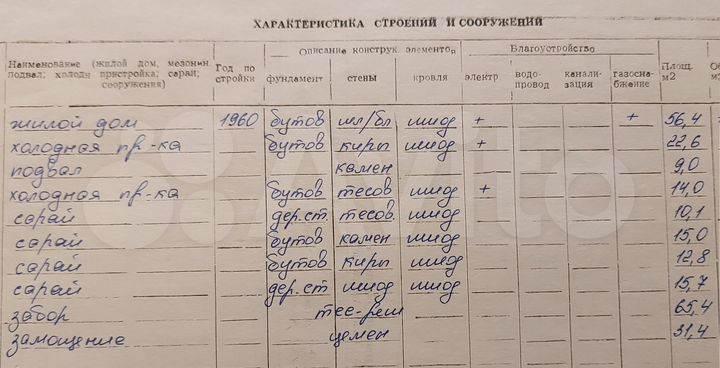 ХАРАКТЕРИСТИКА СТРОЕНИЙ И СООРУЖЕНИЙ
Наименование (жилой дом, мезонин подвал; холодн пристройка; сарай; сооружения) Год по стройки Описание конструк. элементов Благоустройство Площ. м2
фундамент стены кровля электр. водо-провод канали-зация газосна-бжение
жилой дом 1960 бутов шл/бл шиод + + 56,4
холодная пр-ка бутов кирп шиод + 22,6
подвал камен 9,0
холодная пр-ка бутов тесов шиод + 14,0
сарай дер.ст. тесов. шиод 10,1
сарай бутов камен шиод 15,0
сарай бутов кирп шиод 12,8
сарай дер.ст шиод шиод 15,7
забор тес-реш 65,4
замощение цемен 31,4
Avito